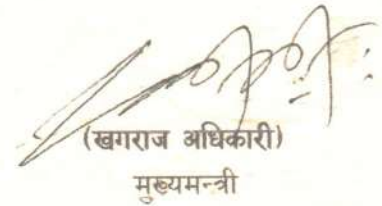 (खगराज अधिकारी)
मुख्यमन्त्री